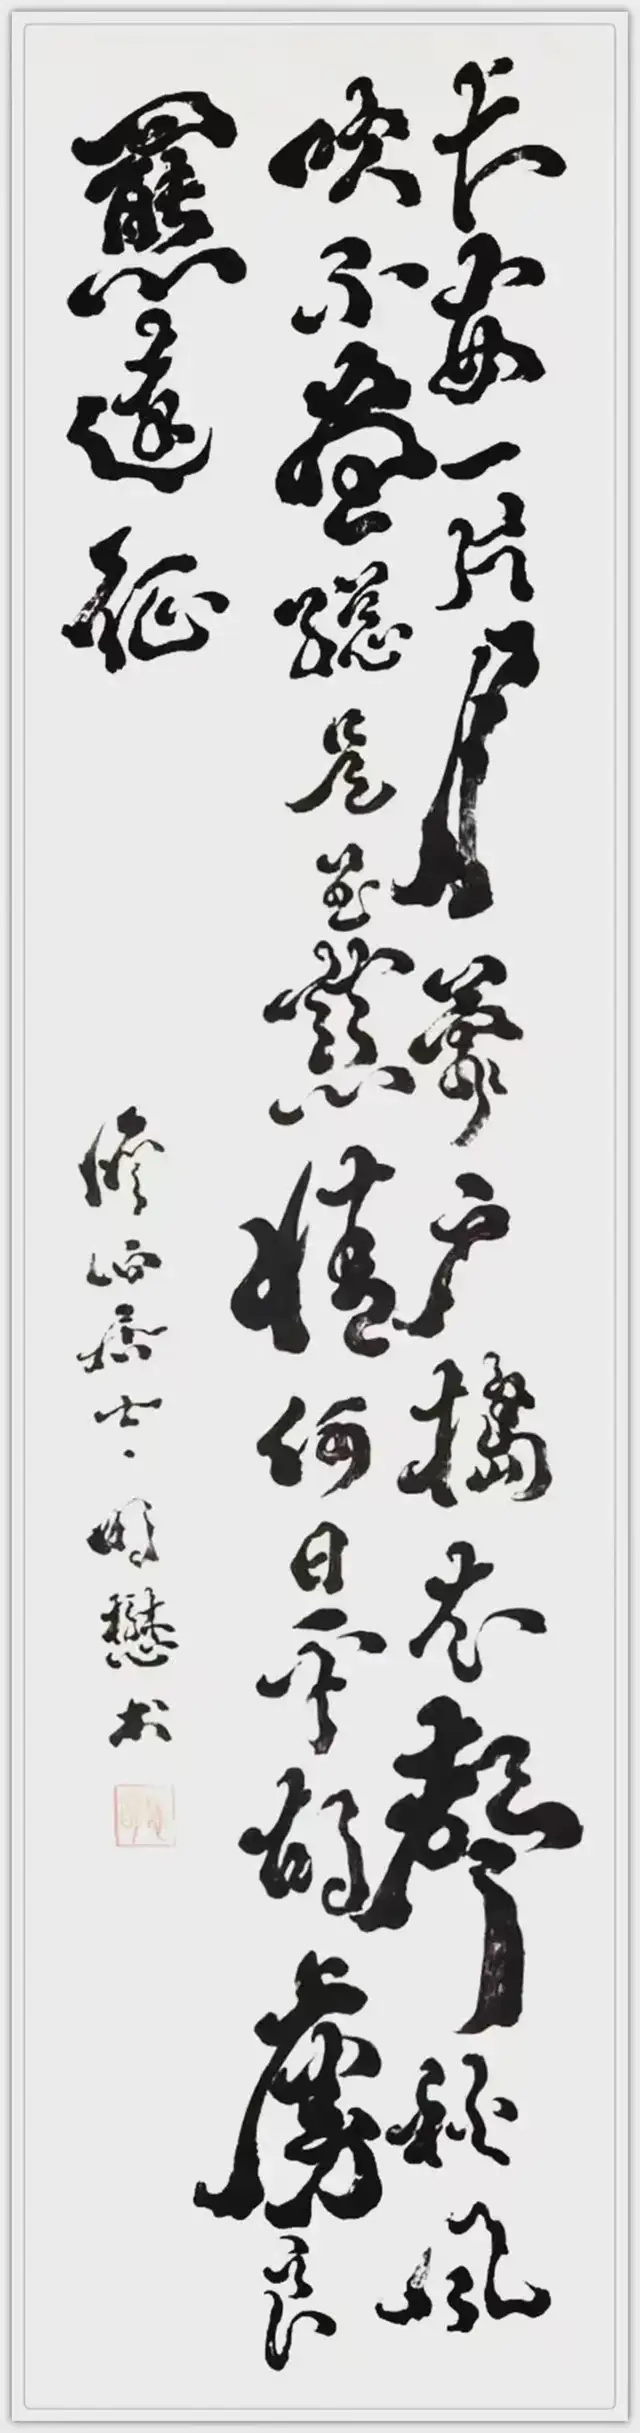 长安一片月萬户搗衣聲秋風
吹不盡總是玉關情何日平胡虜良人
罷遠征
居士明懋书